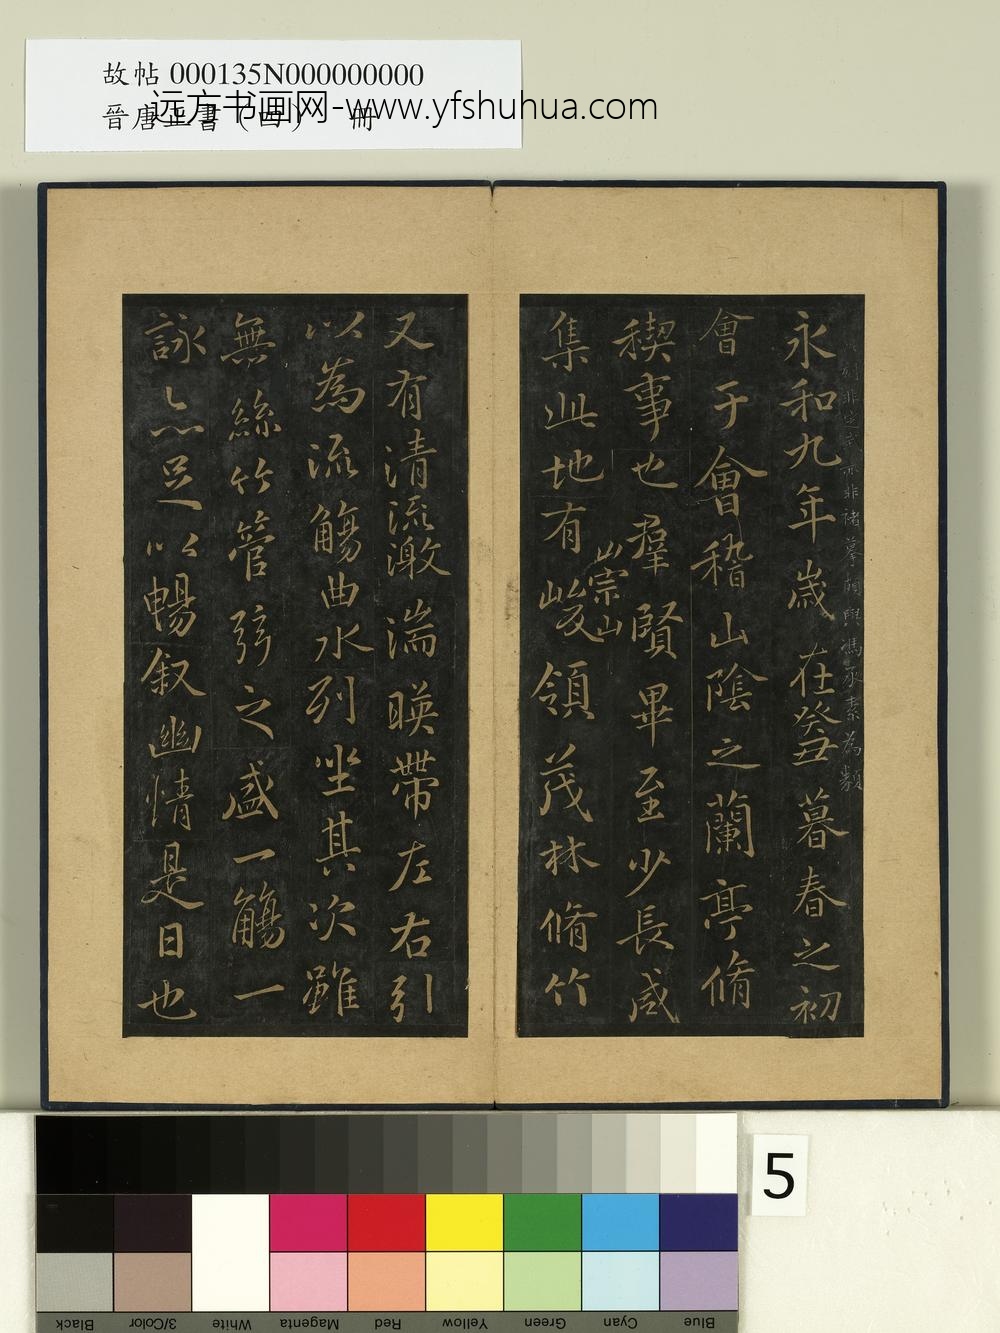 故帖 000135N000000000
晉唐正書（四） 冊
远方书画网-www.yfshuhua.com
刻非定武亦非褚摹頗與馮承素為類
永和九年歲在癸丑暮春之初
會于會稽山陰之蘭亭脩
稧事也羣賢畢至少長咸
集此地有崇山峻領茂林脩竹
又有清流激湍暎帶左右引
以為流觴曲水列坐其次雖
無絲竹管弦之盛一觴一
詠亦足以暢叙幽情是日也
5
Black
3/Color
White
Magenta
Red
Yellow
Green
Cyan
Blue